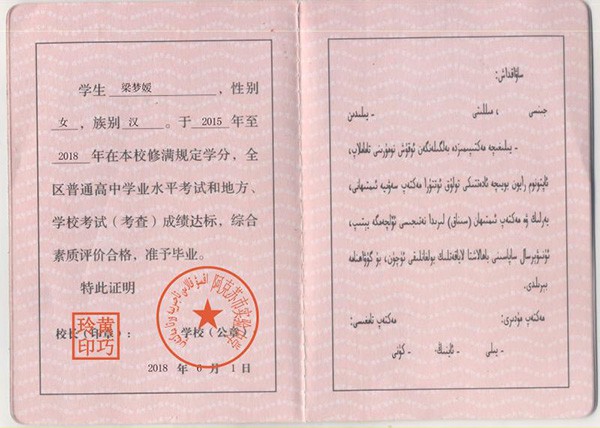 学生 梁梦媛 ，性别
女 ，族别 汉 。于 2015 年至
2018 年在本校修满规定学分，全
区普通高中学业水平考试和地方、
学校考试（考查）成绩达标，综合
素质评价合格，准予毕业。
特此证明
校长（印章）： 学校（公章）
巧玲印
阿克苏市实验中学
2018 年 6 月 1 日
ساۋاقداش:
جىنسى ، مىللىتى - يىلىدىن
- يىلىغىچە مەكتىپىمىزدە بەلگىلەنگەن ئوقۇش نومۇرىنى تاماملاپ،
ئاپتونوم رايون بويىچە ئادەتتىكى تولۇق ئوتتۇرا مەكتەپ سەۋىيە ئىمتىھانى،
يەرلىك ۋە مەكتەپ ئىمتىھان (سىناق) لىرىدا نەتىجىسى ئۆلچەمگە يېتىپ،
ئۇنىۋېرسال ساپاسىنى باھالاشتا لاياقەتلىك بولغانلىقى ئۈچۈن، بۇ گۇۋاھنامە
بېرىلدى.
مەكتەپ مۇدىرى: مەكتەپ تامغىسى:
- يىلى - ئاينىڭ - كۈنى